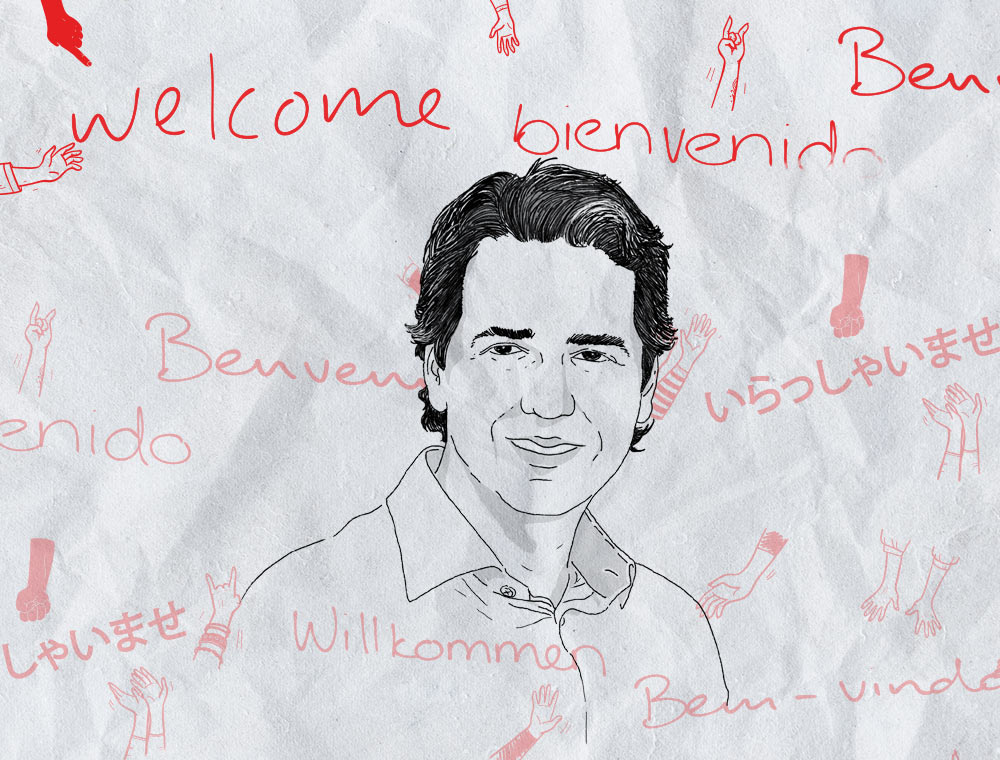 welcome
Ben
bienvenido
Benven
いらっしゃいませ
enido
しゃいませ
Willkommen
Bem-vindo